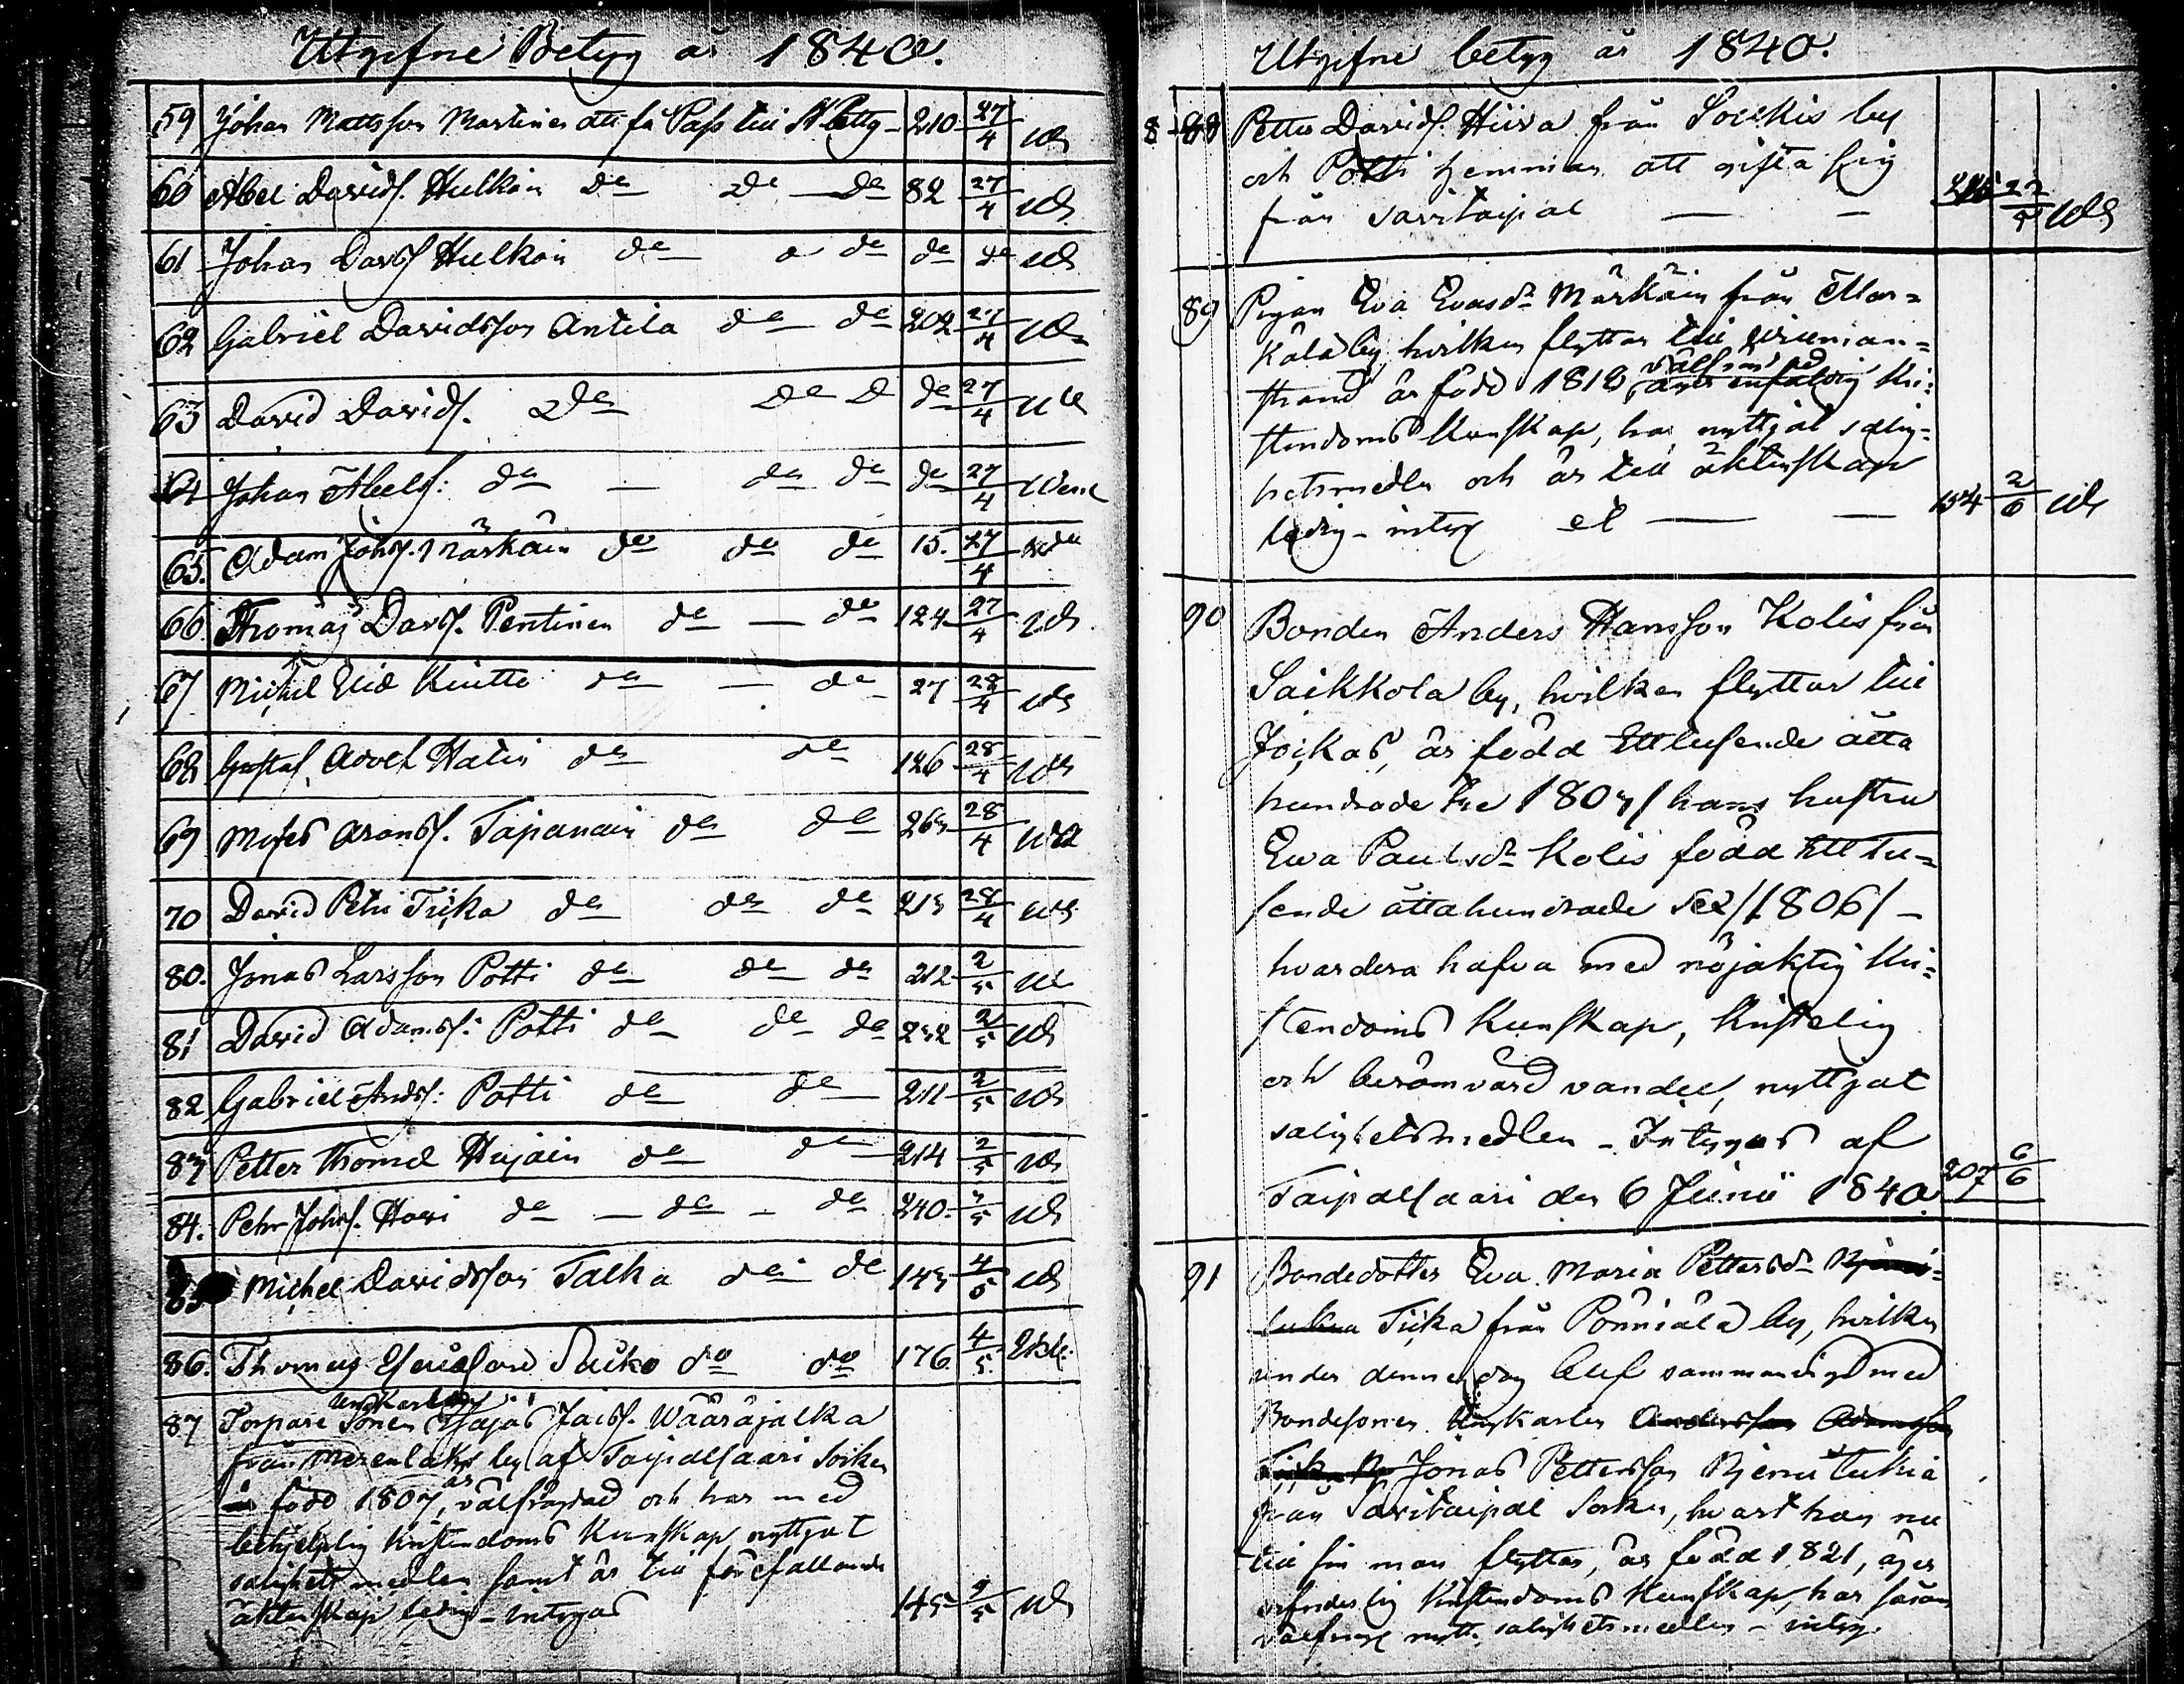 Utgifne Betyg år 1840.
59 Johan Mattsson Martinen att få Pass till St Petbg - 210 27/4 Uds
60 Abel Davids. Hulköin do do do 82 27/4 Uds
61 Johan Davds Hulköin do do do do Uds
62 Gabriel Davidsson Antila do do 202 27/4 Uds
63 David Davids. do do do 27/4
64 Johan Abels: do — do do do 27/4
65. Adam Johs. Närkäin do do do 15. 27/4
66 Thomas Davds. Pentinen do — do 124 27/4 Uds
67 Michel Kiutti do — do 27 28/4 Uds
68. Gustaf Adolf Halin do do 126 28/4 Uds
69 Moses Aronds. Tapanain do do 263 28/4
70 David Petri Tiika do do do 213 28/4 Uds
80. Jonas Larsson Potti do do do 212 2/5
81 David Adamds: Potti do do do 232 2/5 Uds
82 Gabriel Andds: Potti do do 211 2/5 Uds
83 Petter Thomd Hujain do do 214 2/5 Uds
84. Pehr Johs. do — do - do 240. 5 Uds
85 Michel Davidsson Talka do do 143 4/5 Uds
86. Thomas do do 176 4/5
ungkarlen
87 Torpare Sonen Esajas Jacds. Wääräjälka
från Merenlaks by af Taipalsaari Socken
är
är född 1807, välfrägdad och har med
behjelplig Kristendoms Kunskap nyttjat
salighets medlen samt är till förefallande
äktenskap ledig - intygas 145 5 Uds
Utgifne betyg år 1840.
88 Petter Davids. Hiiva från Soickis by
och Potti hemman att gifta sig
från Savitaipal — — 22/5 Uds
89 Pigan Eva Evasdr Märkäin från Mar=
kälä by, hvilken flyttar till
välfrägdad
strand är född 1818, äger enfaldig Kri=
stendoms Kunskap, har nyttjat salig=
hetsmedlen och är till äktenskap
ledig - intyg — — 154 2/6 Uds
90 Bonden Anders Hansson Kolis från
Saikkola by, hvilken flyttar till
Joikas, är född Ettusende åtta
hundrade tre 1803/ hans hustru
Ewa Paulsdr Kolis född Ett tu=
sende åttahundrade sex /1806/ -
hvardera hafva med nöjaktig Kri=
stendoms Kunskap, Kristelig
och berömvärd vandel, nyttjat
salighetsmedlen - Intygas af
Taipalsaari den 6 Junii 1840. 207 6/6
91 Bondedotter Eva Maria Pettersdr
Tiika från Pönniälä by, hvilken
under denne dag blef sammanvigd med
Bondesonen Ungkarlen Andersson Adamsson
Jonas Pettersson
från Savitaipal Socken, hvart hon nu
till sin man flyttar, är född 1821, äger
erforderlig Kristendoms Kunskap, har såsom
välfrägd nytt. salighetsmedlen - intyg.